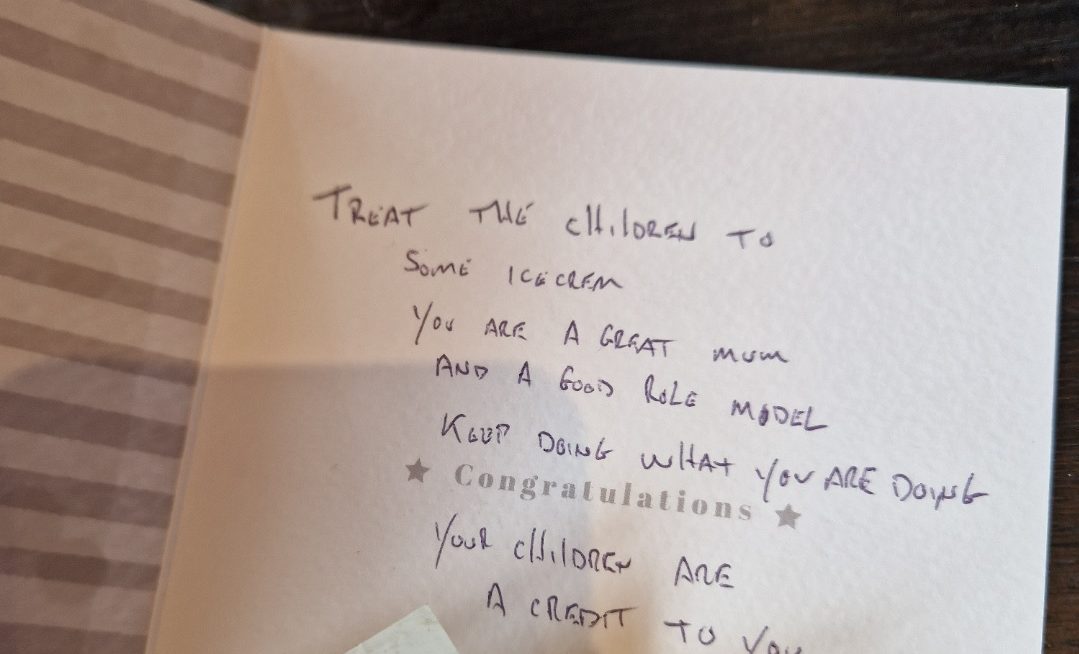 TREAT THE CHILDREN TO
SOME ICECREM
YOU ARE A GREAT MUM
AND A GOOD ROLE MODEL
KEEP DOING WHAT YOU ARE DOING
★ Congratulations ★
YOUR CHILDREN ARE
A CREDIT TO YOU